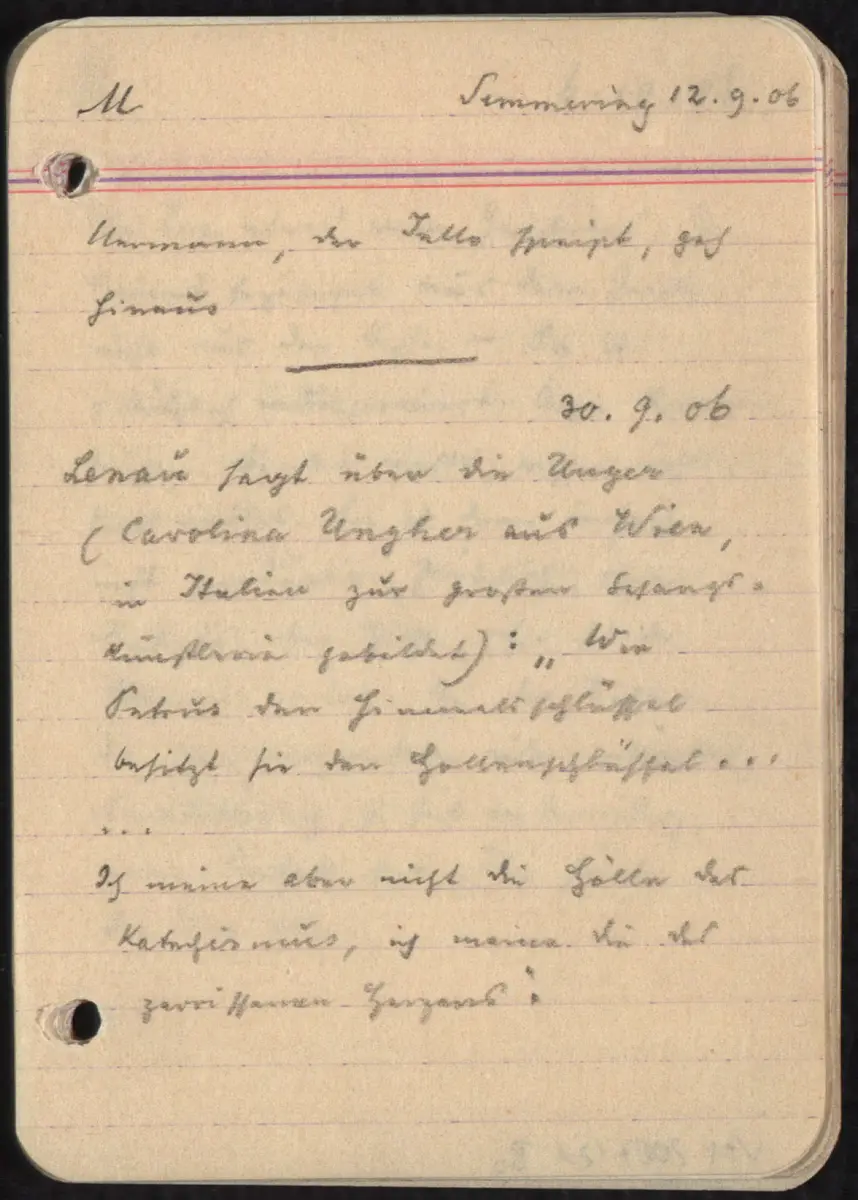 M Semmering 12.9.06
Hermann, der speipt, geh
hinaus
30.9.06
Lenau sagt über die Unger
(Carolina Ungher aus Wien,
in Italien zur großen Gesangs-
künstlerin gebildet): „Wie
Petrus den Himmelsschlüssel
besitzt sie den Höllenschlüssel ...
...
Ich meine aber nicht die Hölle des
Katechismus, ich meine die des
zerrissenen Herzens“.